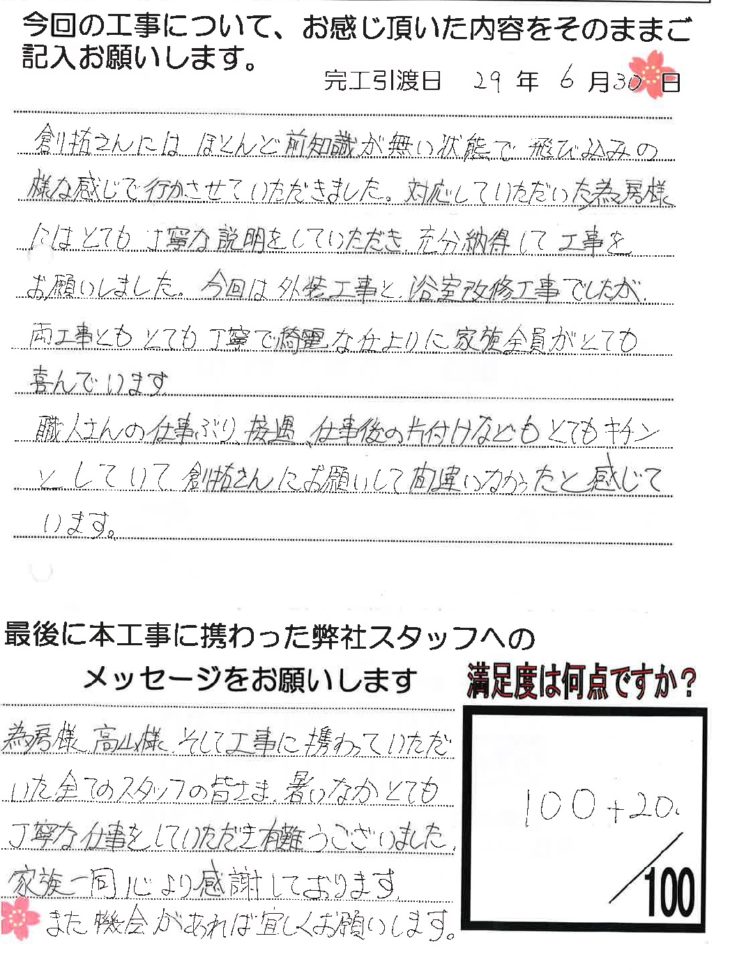 今回の工事について、お感じ頂いた内容をそのままご
記入お願いします。
完工引渡日 29 年 6 月 30 日
創拓さんには ほとんど前知識が無い状態で 飛び込みの
様な感じで行かさせていただきました。対応していただいた為房様
にはとても 丁寧な説明をしていただき 充分納得して 工事を
お願いしました。今回は外装工事と、浴室改修工事でしたが、
両工事とも とても 丁寧で綺麗な仕上りに 家族全員がとても
喜んでいます
職人さんの仕事ぶり 接遇、仕事後の片付けなども とてもキチン
としていて 創拓さんにお願いして間違いなかったと感じて
います。
最後に本工事に携わった弊社スタッフへの
メッセージをお願いします
満足度は何点ですか?
為房様、高山様、そして工事に携わっていただ
いた全てのスタッフの皆さま、暑いなかとても
丁寧な仕事をしていただき有難うございました。
家族一同心より感謝しております。
また機会があれば宜しくお願いします。
100+20.
/100